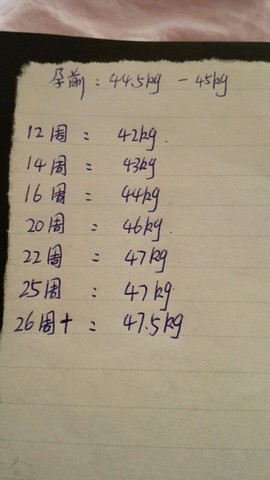 孕前：44.5kg - 45kg
12周：42kg.
14周：43kg
16周：44kg
20周：46kg.
22周：47kg
25周：47kg.
26周+：47.5kg